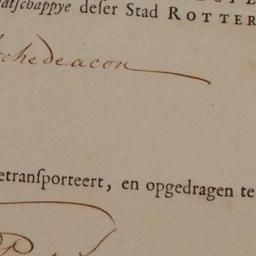 atſchappye deſer Stad ROTTER
chedeacon
etranſporteert, en opgedragen te